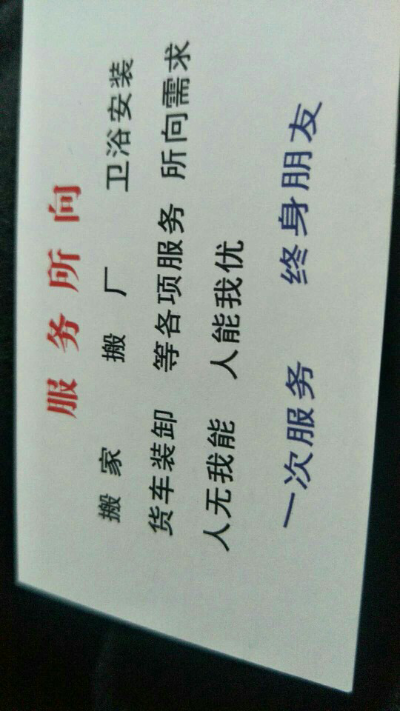 服务所向
搬家 搬厂 卫浴安装
货车装卸 等各项服务 所向需求
人无我能 人能我优
一次服务 终身朋友